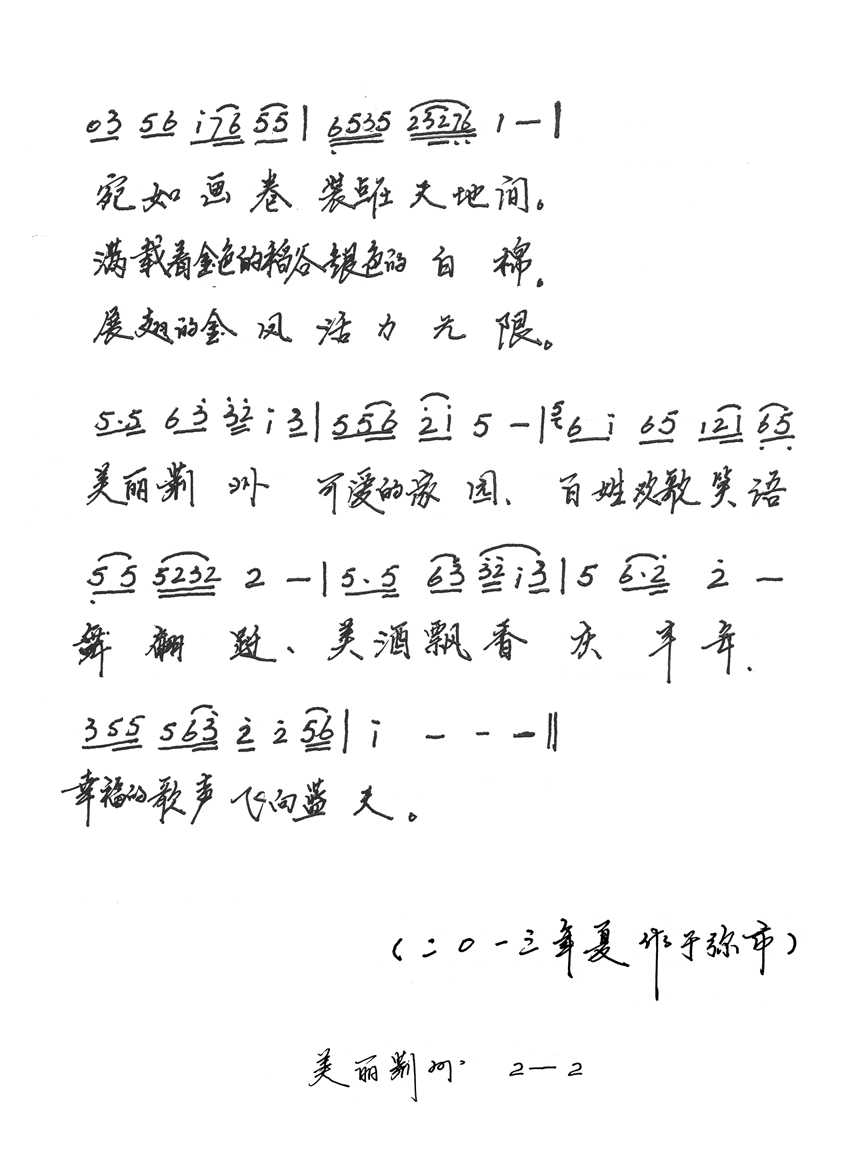 03 56 i76 55 | 6535 23276 1 — |
宛如画卷 装点在天地间。
满载着金色的稻谷银色的白棉。
展翅的金凤活力无限。
5.5 63 32 i 3 | 556 2i 5 — | 56 i 65 121 65
美丽荆州 可爱的家园、百姓欢歌笑语
55 5232 2 — | 5.5 63 32i3 | 5 6.2 2 —
舞翩跹、美酒飘香庆丰年.
355 563 2 2 56 | i — — — ‖
幸福的歌声飞向蓝天。
(二0一三年夏作于弥市)
美丽荆州· 2—2